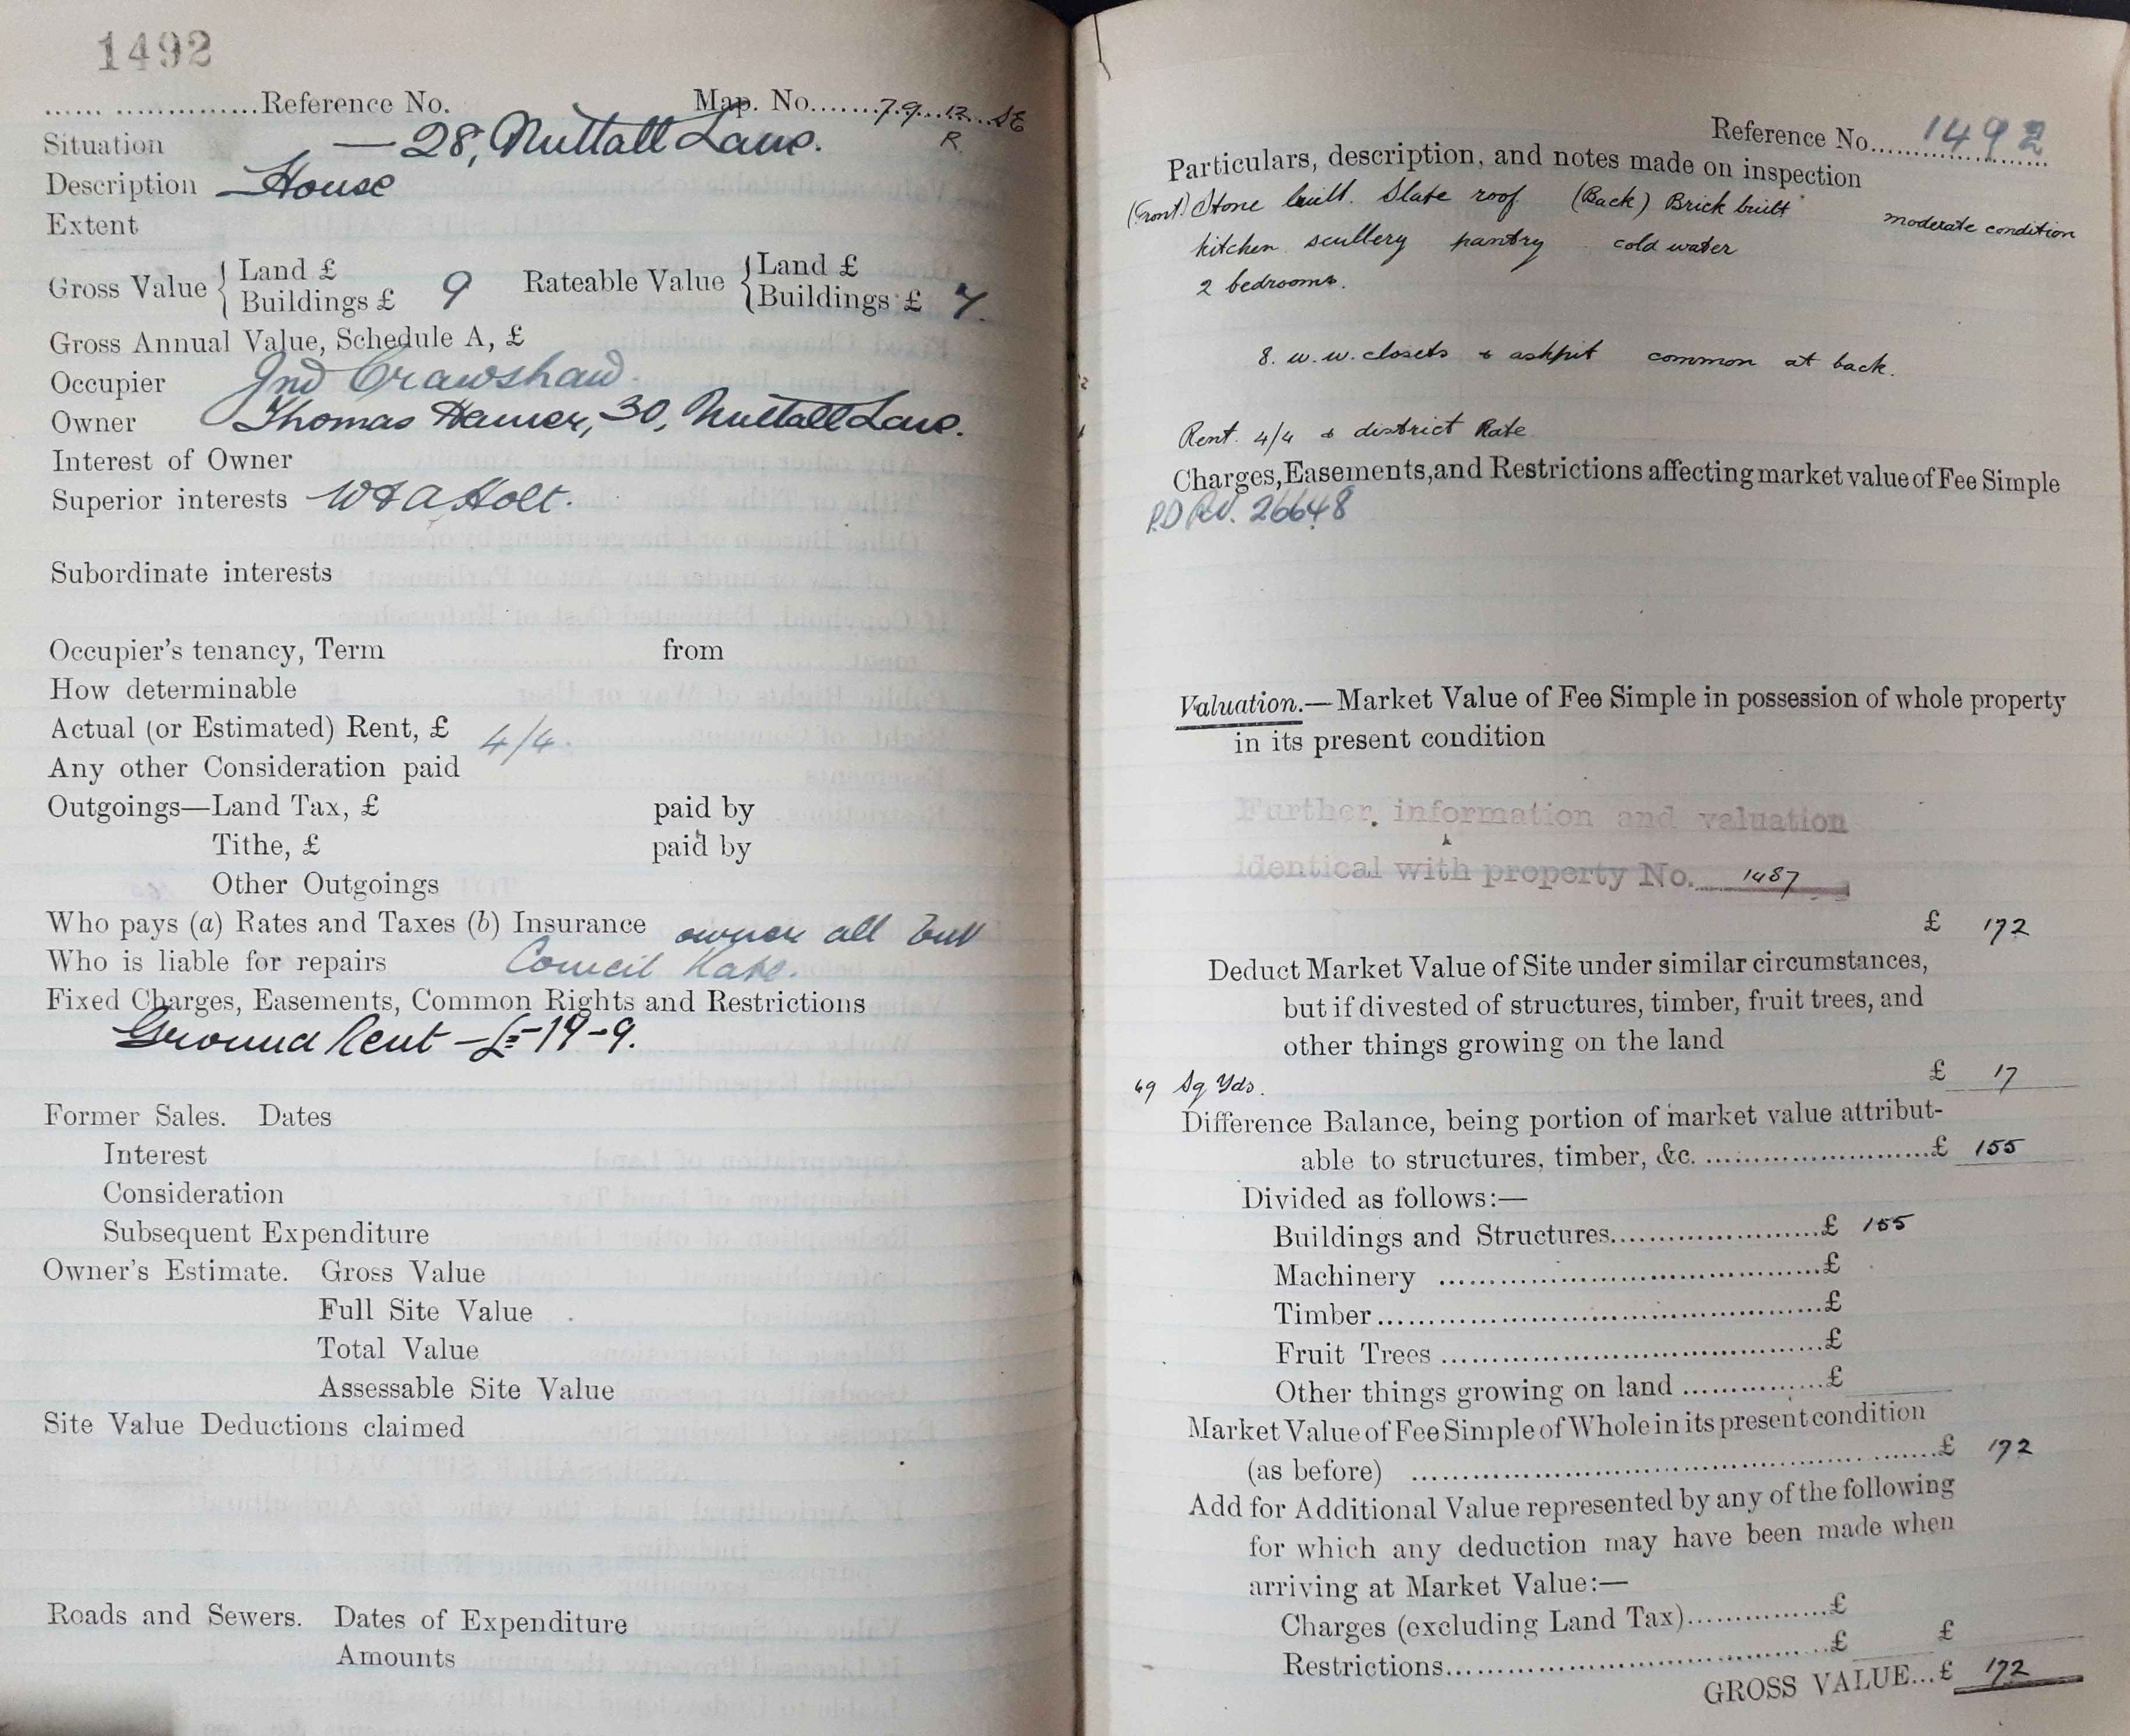 1492
Reference No. Map. No. 79 12 SE
R.
Situation — 28, Nuttall Lane.
Description House
Extent
Gross Value { Land £ Rateable Value { Land £
Buildings £ 9 Buildings £ 7.
Gross Annual Value, Schedule A, £
Occupier Jno Crawshaw.
Owner Thomas Hamer, 30, Nuttall Lane.
Interest of Owner
Superior interests W & A Holt.
Subordinate interests
Occupier's tenancy, Term from
How determinable
Actual (or Estimated) Rent, £ 4/4.
Any other Consideration paid
Outgoings—Land Tax, £ paid by
Tithe, £ paid by
Other Outgoings
Who pays (a) Rates and Taxes (b) Insurance owner all but
Who is liable for repairs Council Rate.
Fixed Charges, Easements, Common Rights and Restrictions
Ground Rent – £=-19-9.
Former Sales. Dates
Interest
Consideration
Subsequent Expenditure
Owner's Estimate. Gross Value
Full Site Value
Total Value
Assessable Site Value
Site Value Deductions claimed
Roads and Sewers. Dates of Expenditure
Amounts
Reference No. 1492
Particulars, description, and notes made on inspection
(Front) Stone built. Slate roof (Back) Brick built moderate condition
kitchen scullery pantry cold water
2 bedrooms.
8. w.w. closets & ashpit common at back.
Rent. 4/4 & district Rate
Charges, Easements, and Restrictions affecting market value of Fee Simple
26648
Valuation.—Market Value of Fee Simple in possession of whole property
in its present condition
Further information and valuation
identical with property No. 1487
£ 172
Deduct Market Value of Site under similar circumstances,
but if divested of structures, timber, fruit trees, and
other things growing on the land
69 Sq Yds. £ 17
Difference Balance, being portion of market value attribut-
able to structures, timber, &c. £ 155
Divided as follows:—
Buildings and Structures £ 155
Machinery £
Timber £
Fruit Trees £
Other things growing on land £
Market Value of Fee Simple of Whole in its present condition
(as before) £ 172
Add for Additional Value represented by any of the following
for which any deduction may have been made when
arriving at Market Value:—
Charges (excluding Land Tax) £
Restrictions £ £
GROSS VALUE... £ 172